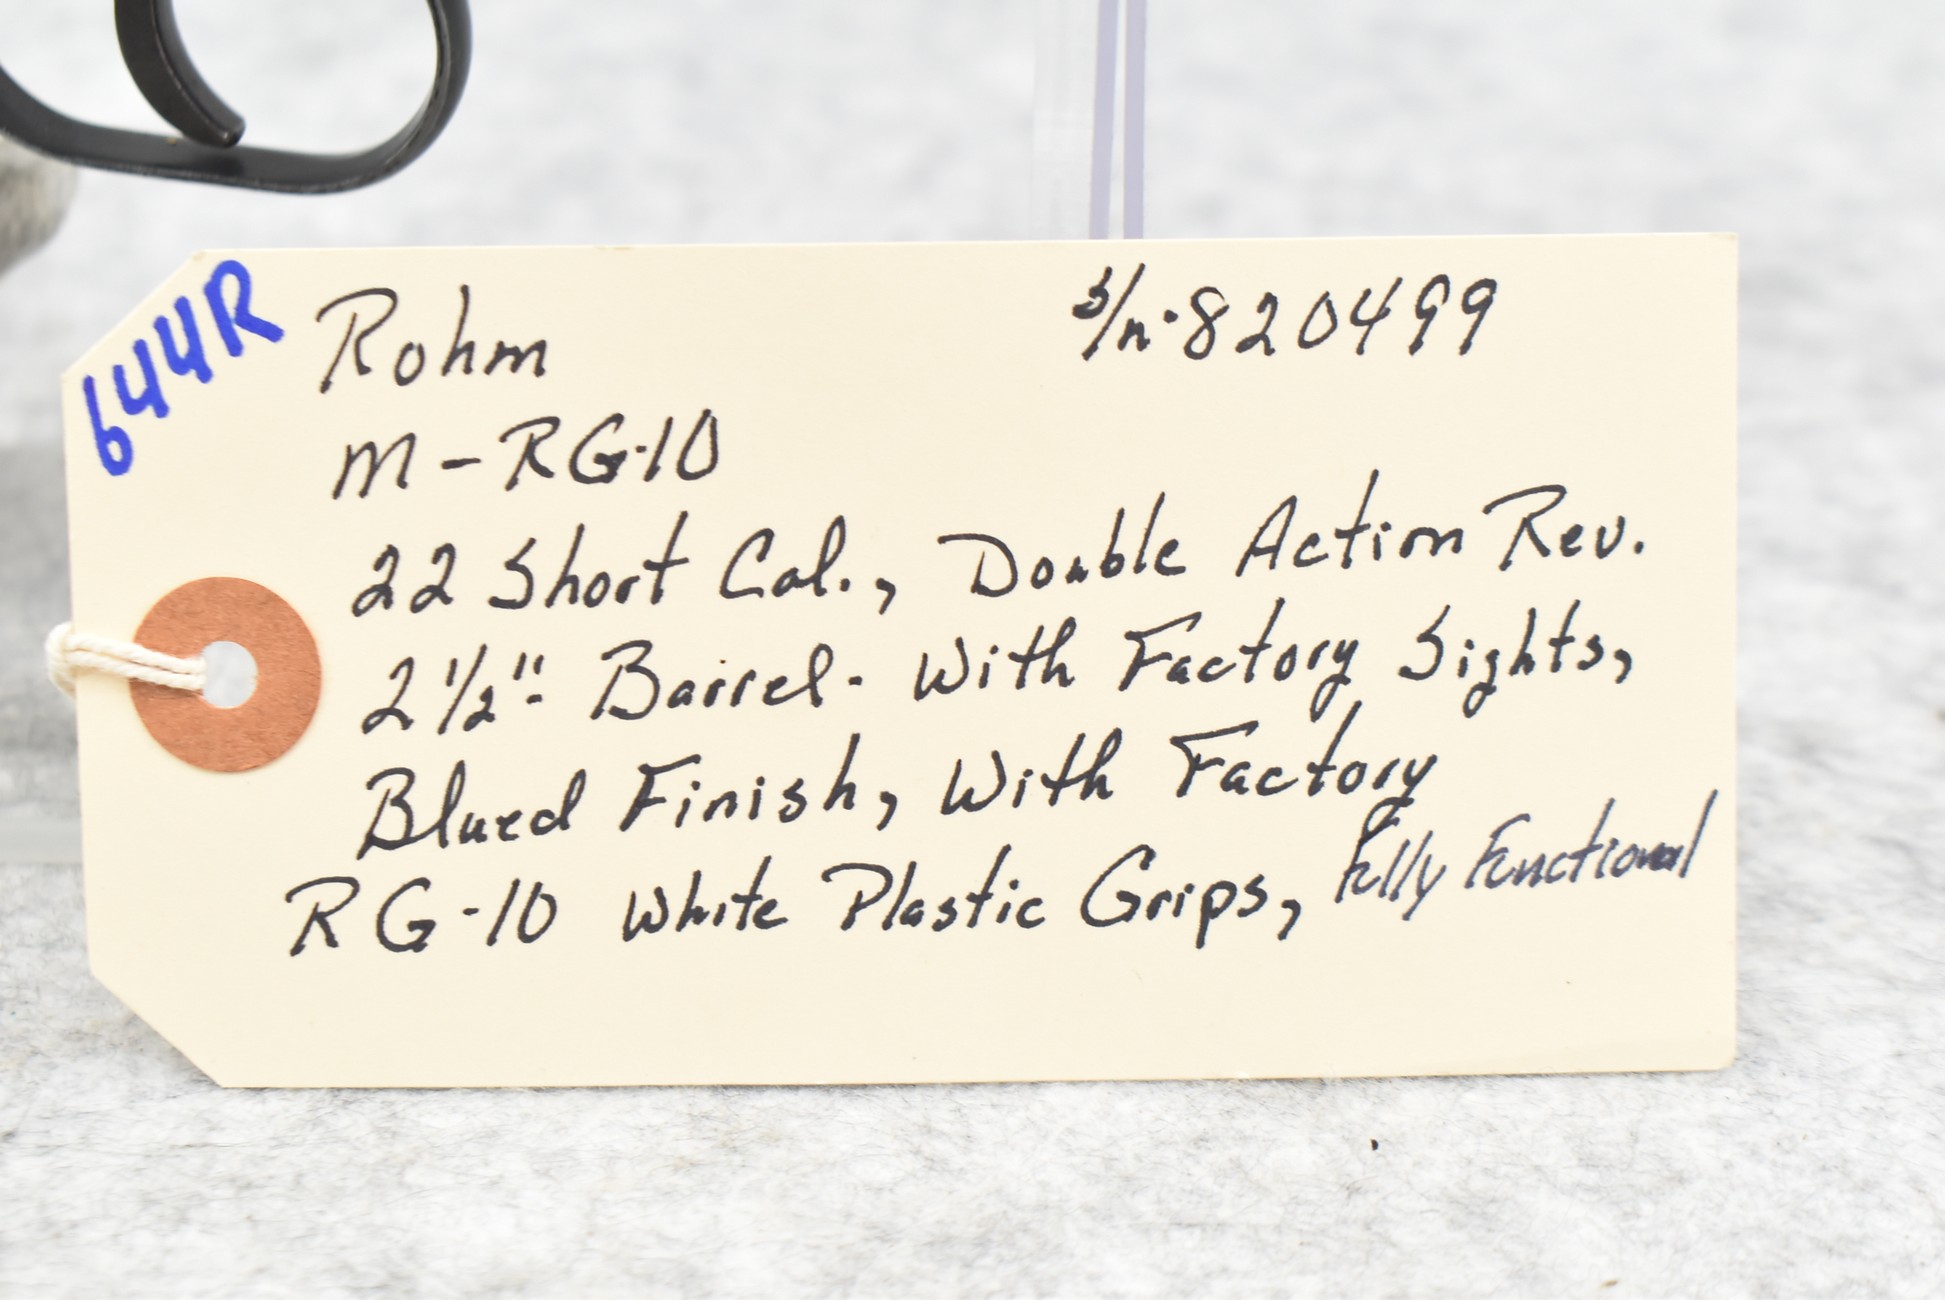 644R
Rohm s/n·820499
M-RG·10
22 Short Cal., Double Action Rev.
2 1/2"- Barrel- With Factory Sights,
Blued Finish, With Factory
RG-10 White Plastic Grips, Fully Functional